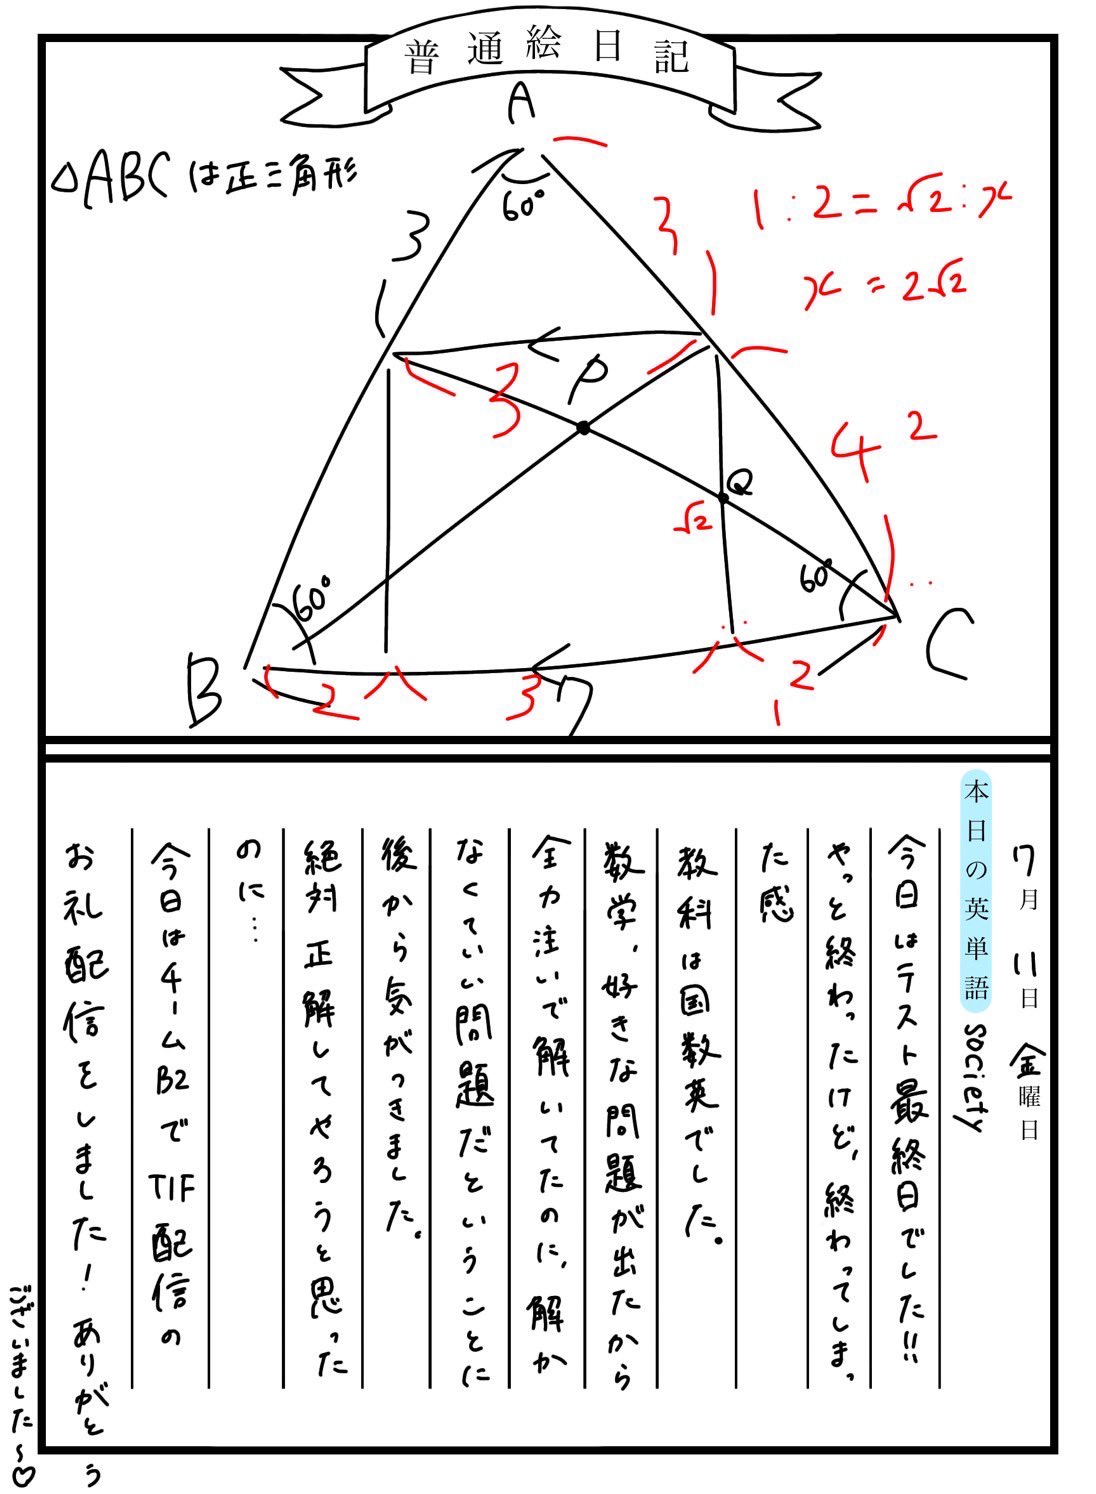 普通絵日記
A
△ABCは正三角形
60°
3
3
1:2=√2:x
x=2√2
P
3
4
2
Q
√2
60°
60°
B
C
2
3
7
2
1
7月 11日 金曜日
本日の英単語 society
今日はテスト最終日でした!!
やっと終わったけど、終わってしまっ
た感
教科は国数英でした。
数学、好きな問題が出たから
全力注いで解いてたのに、解か
なくていい問題だということに
後から気がつきました。
絶対正解してやろうと思った
のに…
今日はチームB2でTIF配信の
お礼配信をしました!ありがとう
ございました〜♡